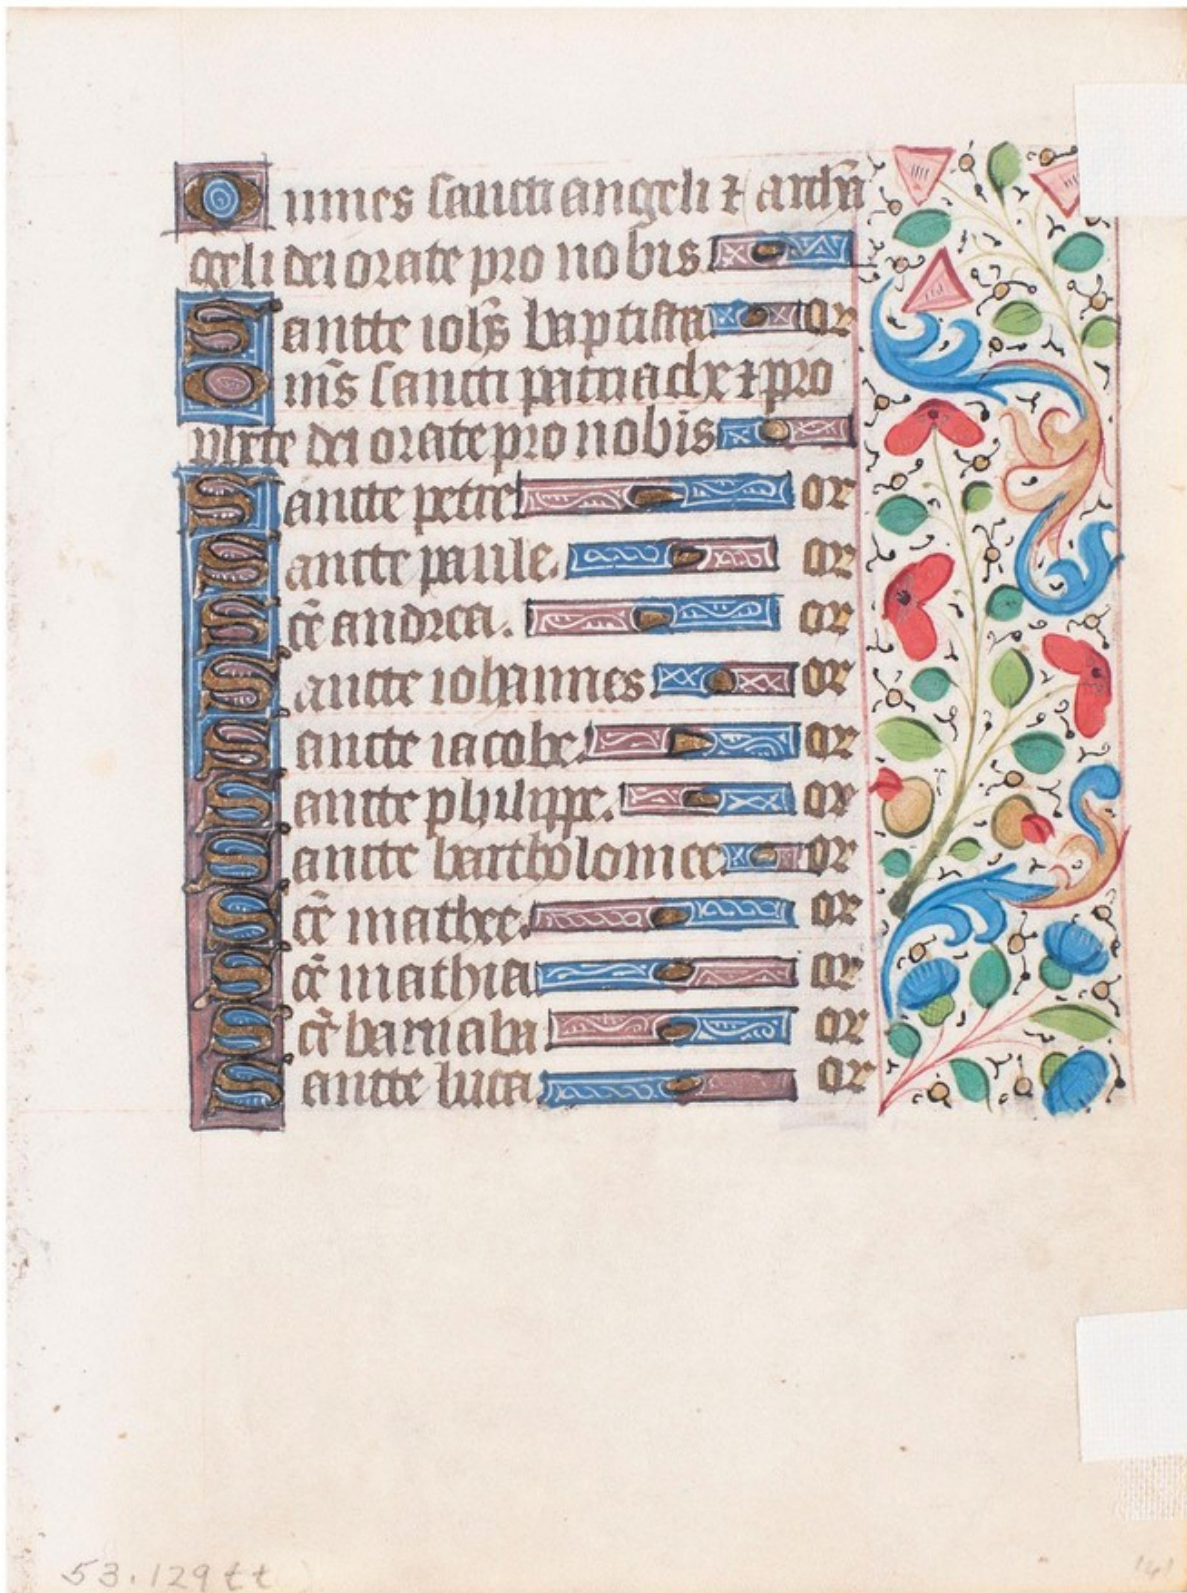 Omnes sancti angeli ⁊ archã
geli dei orate pro nobis
Sancte iohẽs baptista or
Om̃s sancti patriache ⁊ pro
phete dei orate pro nobis
Sancte petre or
Sancte paule. or
Sc̃e andrea. or
Sancte iohannes or
Sancte iacobe. or
Sancte philippe. or
Sancte bartholomee. or
Sc̃e mathee. or
Sc̃e mathia or
Sc̃e barnaba or
Sancte luca or
53.129tt